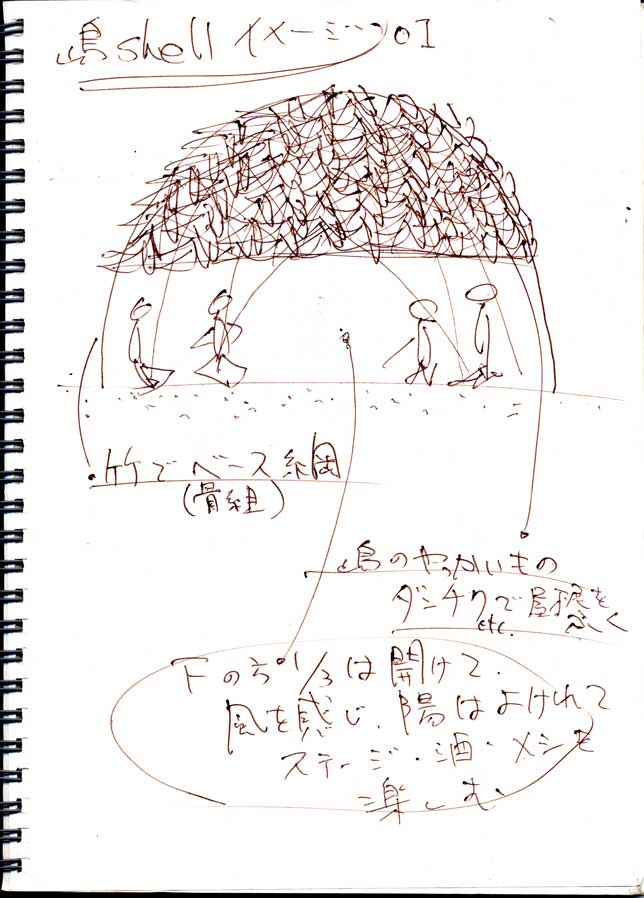 島shell イメージ 01
竹でベース編
(骨組)
島のやっかいもの
ダンチクで屋根を
etc. ふく
下の方1/3は開けて.
風を感じ. 陽はよけれて
ステージ・酒・メシを
楽しむ